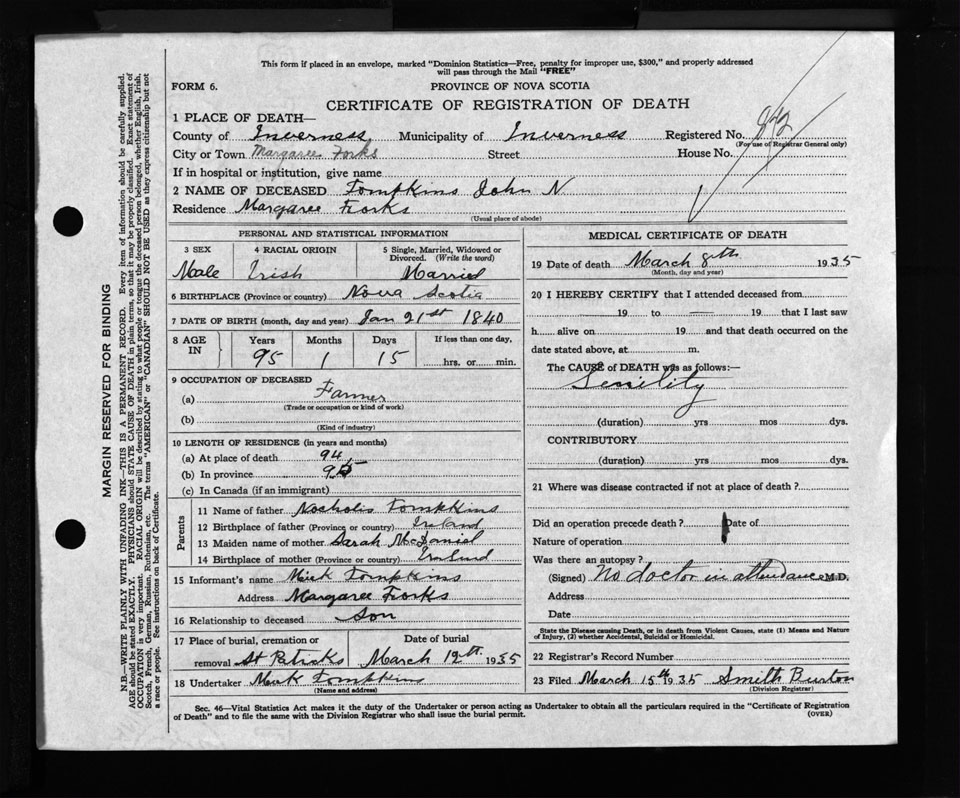 This form if placed in an envelope, marked "Dominion Statistics—Free, penalty for improper use, $300," and properly addressed
will pass through the Mail "FREE"
FORM 6. PROVINCE OF NOVA SCOTIA
CERTIFICATE OF REGISTRATION OF DEATH
1 PLACE OF DEATH—
County of Inverness Municipality of Inverness Registered No.
(For use of Registrar General only)
City or Town Margaree Forks Street House No.
If in hospital or institution, give name
2 NAME OF DECEASED Tompkins John N
Residence Margaree Forks
(Usual place of abode)
PERSONAL AND STATISTICAL INFORMATION
3 SEX 4 RACIAL ORIGIN 5 Single, Married, Widowed or
Divorced. (Write the word)
Male Irish Married
6 BIRTHPLACE (Province or country) Nova Scotia
7 DATE OF BIRTH (month, day and year) Jan 21st 1840
8 AGE IN Years Months Days If less than one day,
95 1 15 hrs. or min.
9 OCCUPATION OF DECEASED
(a) Farmer
(Trade or occupation or kind of work)
(b)
(Kind of industry)
10 LENGTH OF RESIDENCE (in years and months)
(a) At place of death 94
(b) In province 95
(c) In Canada (if an immigrant)
Parents
11 Name of father Nocholis Tompkins
12 Birthplace of father (Province or country) Ireland
13 Maiden name of mother Sarah McDaniel
14 Birthplace of mother (Province or country) Ireland
15 Informant's name Mick Tompkins
Address Margaree Forks
16 Relationship to deceased Son
17 Place of burial, cremation or Date of burial
removal St Patricks March 12th 1935
18 Undertaker Mick Tompkins
(Name and address)
MEDICAL CERTIFICATE OF DEATH
19 Date of death March 8th 1935
(Month, day and year)
20 I HEREBY CERTIFY that I attended deceased from
19 to — 19 that I last saw
h alive on 19 and that death occurred on the
date stated above, at m.
The CAUSE of DEATH was as follows:—
Senility
(duration) yrs mos dys.
CONTRIBUTORY
(duration) yrs mos dys.
21 Where was disease contracted if not at place of death?
Did an operation precede death? Date of
Nature of operation
Was there an autopsy?
(Signed) No doctor in attendance M.D.
Address
Date
State the Disease causing Death, or in death from Violent Causes, state (1) Means and Nature
of Injury, (2) whether Accidental, Suicidal or Homicidal.
22 Registrar's Record Number
23 Filed March 15th 1935 Smith Burton
(Division Registrar)
Sec. 46—Vital Statistics Act makes it the duty of the Undertaker or person acting as Undertaker to obtain all the particulars required in the "Certificate of Registration
of Death" and to file the same with the Division Registrar who shall issue the burial permit. (OVER)
MARGIN RESERVED FOR BINDING
N.B.—WRITE PLAINLY WITH UNFADING INK—THIS IS A PERMANENT RECORD. Every item of information should be carefully supplied.
AGE should be stated EXACTLY. PHYSICIANS should STATE CAUSE OF DEATH in plain terms, so that it may be properly classified. Exact statement of
OCCUPATION is very important. RACIAL ORIGIN will be described by stating to what people or tongue the deceased person belonged, whether English, Irish,
Scotch, French, German, Russian, Ruthenian, etc. The terms "AMERICAN" or "CANADIAN" SHOULD NOT BE USED as they express citizenship but not
a race or people. See instructions on back of Certificate.